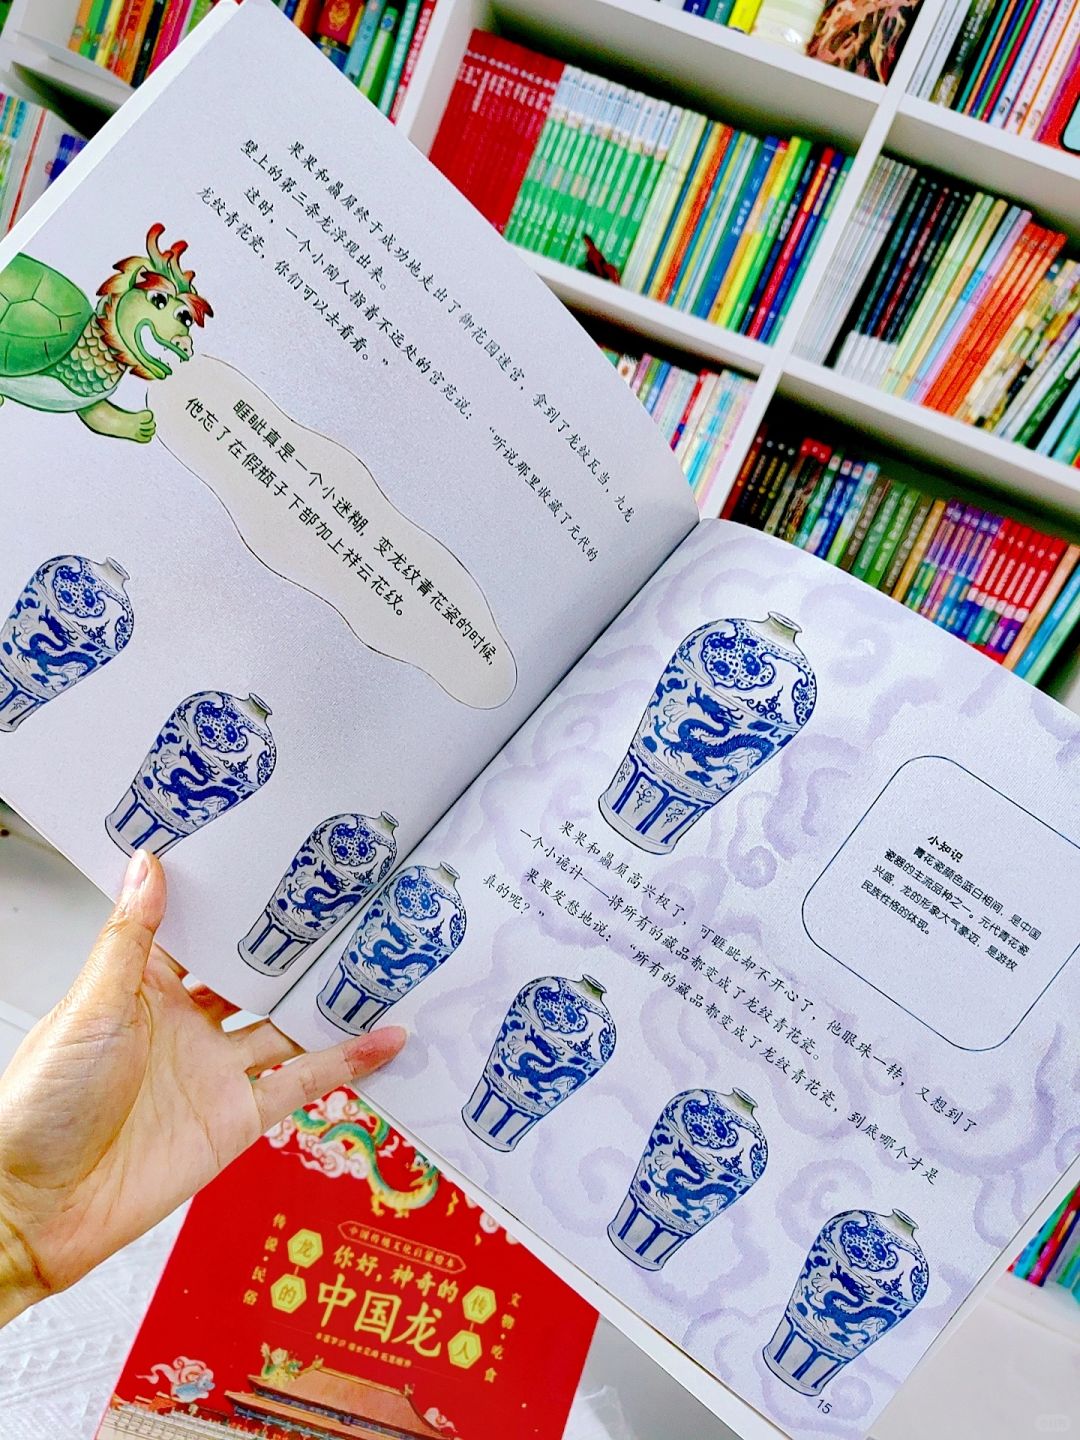 果果和赑屃终于成功地走出了御花园迷宫，拿到了龙纹瓦当，九龙
壁上的第三条龙浮现出来。
这时，一个小陶人指着不远处的宫苑说：“听说那里收藏了元代的
龙纹青花瓷，你们可以去看看。”
睚眦真是一个小迷糊，变龙纹青花瓷的时候，
他忘了在假瓶子下部加上祥云花纹。
小知识
青花瓷颜色蓝白相间，是中国
瓷器的主流品种之一。元代青花瓷
兴盛，龙的形象大气豪迈，是游牧
民族性格的体现。
果果和赑屃高兴极了，可睚眦却不开心了，他眼珠一转，又想到了
一个小诡计——将所有的藏品都变成了龙纹青花瓷。
果果发愁地说：“所有的藏品都变成了龙纹青花瓷，到底哪个才是
真的呢？”
15
中国传统文化启蒙绘本
你好，神奇的
中国龙
龙的传人
传说·民俗
文物·吃食